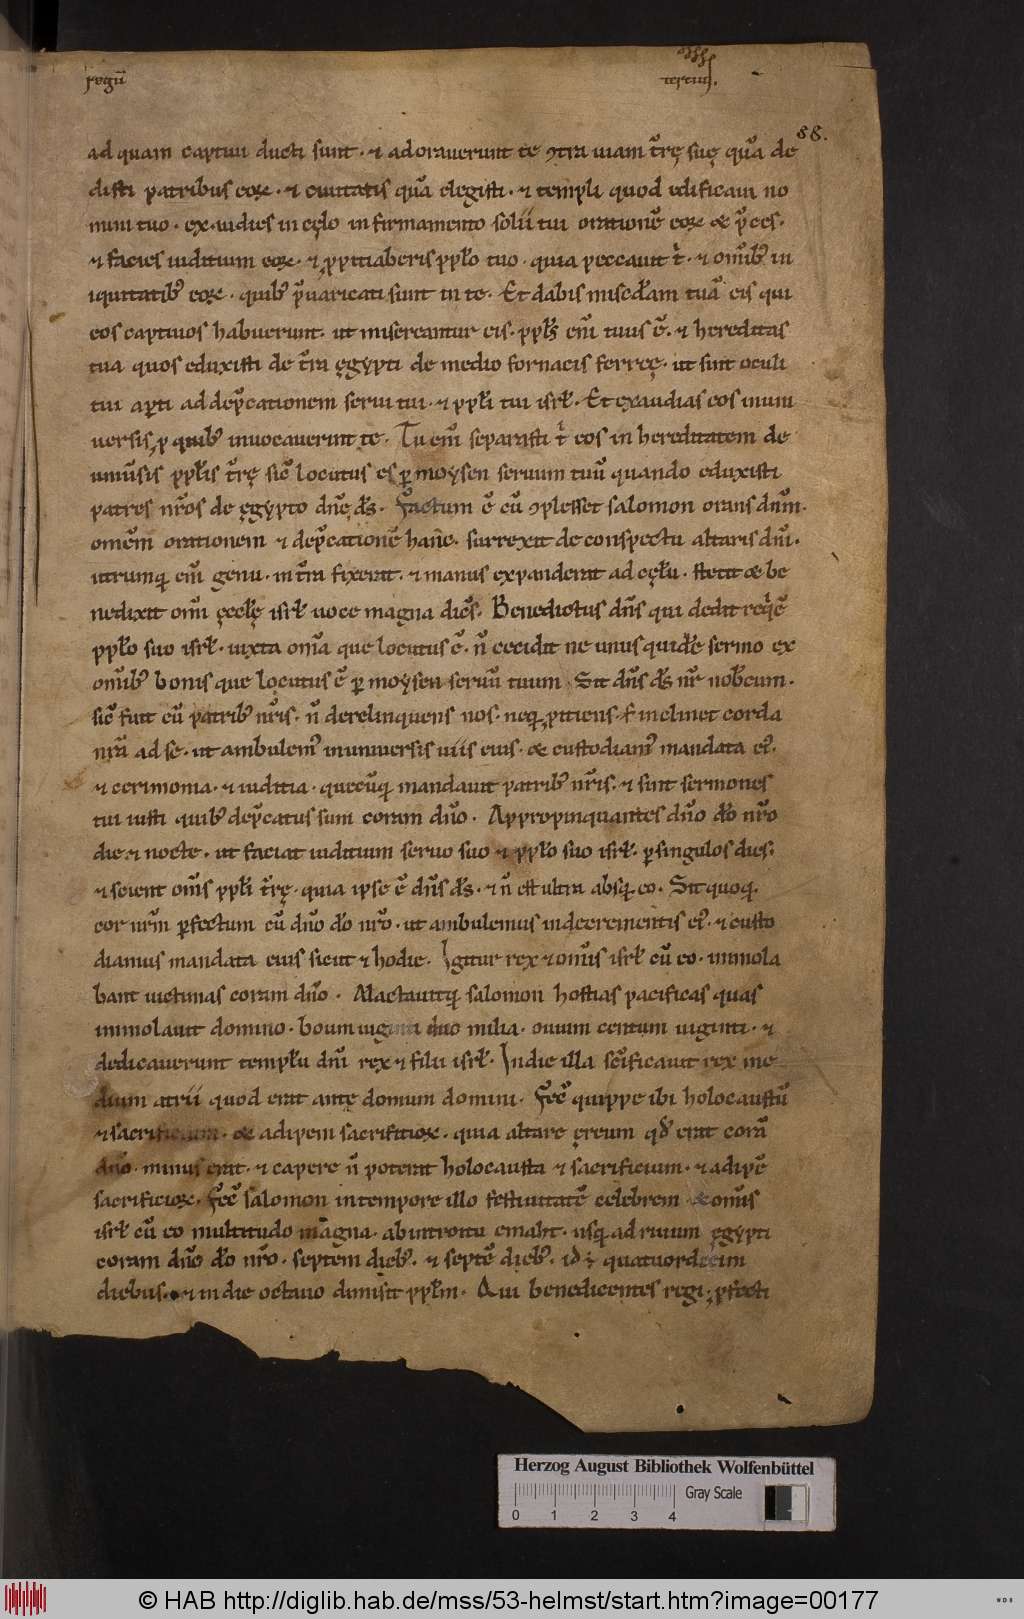 regū
tertius.
88.
ad quam captiui ducti sunt · ⁊ adorauerunt te ꝯtra uiam t̄rę suę quā de
disti patribus eoꝝ · ⁊ ciuitatis quā elegisti · ⁊ templi quod edificaui no
mini tuo · exaudies in cęlo in firmamento solii tui orationē eoꝝ & p̄ces ·
⁊ facies iuditium eoꝝ · ⁊ ꝓpitiaberis pp̄lo tuo · quia peccauit t̄ · ⁊ omībꝰ in
iquitatibꝰ eoꝝ · quibꝰ p̄uaricati sunt in te · Et dabis miscd̄iam tuā eis qui
eos captiuos habuerunt · ut misereantur eis · ppl̄s em̄ tuus ē · ⁊ hereditas
tua quos eduxisti de t̄ra ęgypti de medio fornacis ferreę · ut sint oculi
tui aꝑti ad dep̄cationem serui tui · ⁊ ppl̄i tui isrł · Et exaudias eos in uni
uersis, ꝓ quibꝰ inuocauerint te · Tu em̄ separasti t̄ eos in hereditatem de
uniūsis ppl̄is t̄rę sic̄ locutus es ꝑ moysen seruum tuū quando eduxisti
patres nr̄os de ęgypto dn̄e dš · Factum ē cū ꝯplesset salomon orans dnm̄ ·
omēm orationem ⁊ dep̄cationē hanc · surrexit de conspectu altaris dn̄i ·
utrumq; em̄ genu · in t̄ra fixerat · ⁊ manus expanderat ad cęlū · stetit & be
nedixit om̄i ęcclę isrł uoce magna dic̄s · Benedictus dn̄s qui dedit reqͥē
pp̄lo suo isrł · iuxta om̄ia que locutus ē · n̄ cecidit ne unus quidē sermo ex
omībꝰ bonis que locutus ē ꝑ moysen seruū tuum · Sit dn̄s dš nr̄ nob̄cum ·
sic̄ fuit cū patribꝰ nr̄is · n̄ derelinquens nos · neq; ꝓitiens · s; inclinet corda
nr̄a ad se · ut ambulemꝰ in uniuersis uiis eius · & custodiamꝰ mandata eiꝰ ·
⁊ cerimonia · ⁊ iuditia · quecūq; mandauit patribꝰ nr̄is · ⁊ sint sermones
tui iusti quibꝰ dep̄catus sum coram dn̄o · Appropinquantes dn̄o dō nr̄o
die ⁊ nocte · ut faciat iuditium seruo suo ⁊ pp̄lo suo isrł · ꝑ singulos dies ·
⁊ scient om̄s ppl̄i t̄rę · quia ipse ē dn̄s dš · ⁊ n̄ est ultra absq; eo · Sit quoq;
cor nr̄m ꝑfectum cū dn̄o dō nr̄o · ut ambulemus in dcerementis eiꝰ · ⁊ custo
diamus mandata eius sicut ⁊ hodie · Igitur rex ⁊ omīs isrł cū eo · immola
bant uictimas coram dn̄o · Mactauitq; salomon hostias pacificas quas
immolauit domino · boum uiginti duo milia · ouium centum uiginti · ⁊
dedicauerunt templū dn̄i rex ⁊ filii isrł · In die illa scīficauit rex me
dium atrii quod erat antę domum domini · Fec̄ quippe ibi holocaustū
⁊ sacrificium · & adipem sacrifitioꝝ · quia altare ęreum qd̄ erat corā
dn̄o · minus erat · ⁊ capere n̄ poterat holocausta ⁊ sacrificium · ⁊ adipē
sacrificioꝝ · Fec̄ salomon in tempore illo festiuitatē celebrem & omīs
isrł cū eo multitudo magna · ab introitu emaht · usq; ad riuum ęgypti
coram dn̄o dō nr̄o · septem diebꝰ · ⁊ septē diebꝰ · id ÷ quatuordecim
diebus · ⁊ in die octauo dimisit ppl̄m · Qui benedicentes regi, ꝓfecti
Herzog August Bibliothek Wolfenbüttel
Gray Scale
0 1 2 3 4
© HAB http://diglib.hab.de/mss/53-helmst/start.htm?image=00177